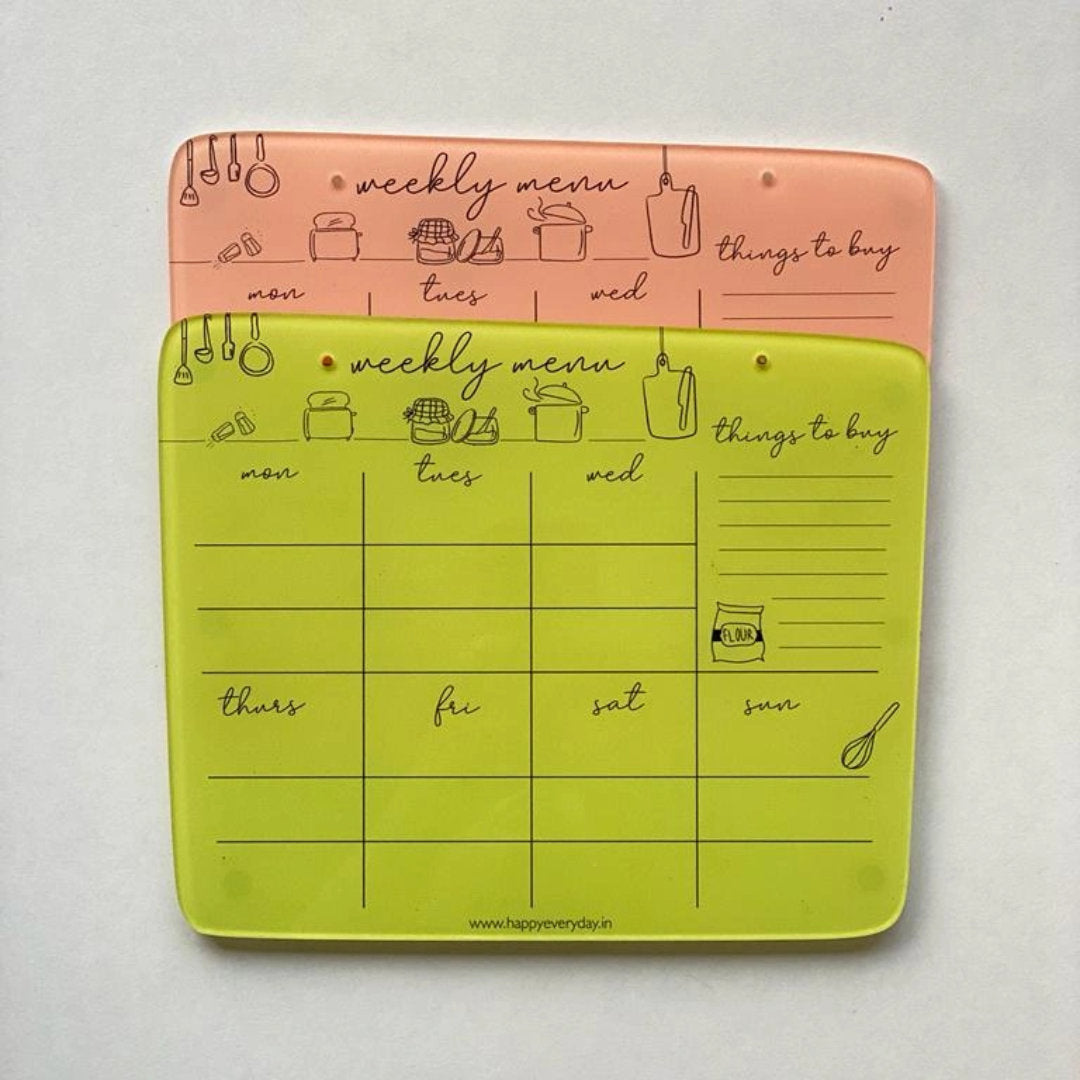 weekly menu
things to buy
mon tues wed
weekly menu
things to buy
mon tues wed
FLOUR
thurs fri sat sun
www.happyeveryday.in